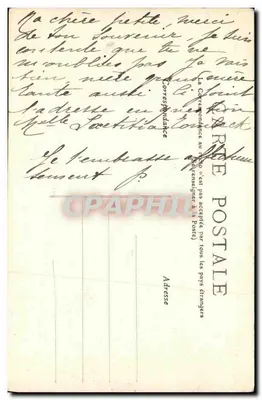 Ma chère petite, merci
de ton souvenir, je suis
contente que tu ne
m'oublies pas. Je vais
bien, notre grand'mère
tante aussi ci-joint
l'adresse en question
Melle Laetitia
Je t'embrasse affectueu
sement P
CARTE POSTALE
La Correspondance au verso n'est pas acceptée par tous les pays étrangers
(Se renseigner à la Poste)
Correspondance
Adresse
CPAPHIL